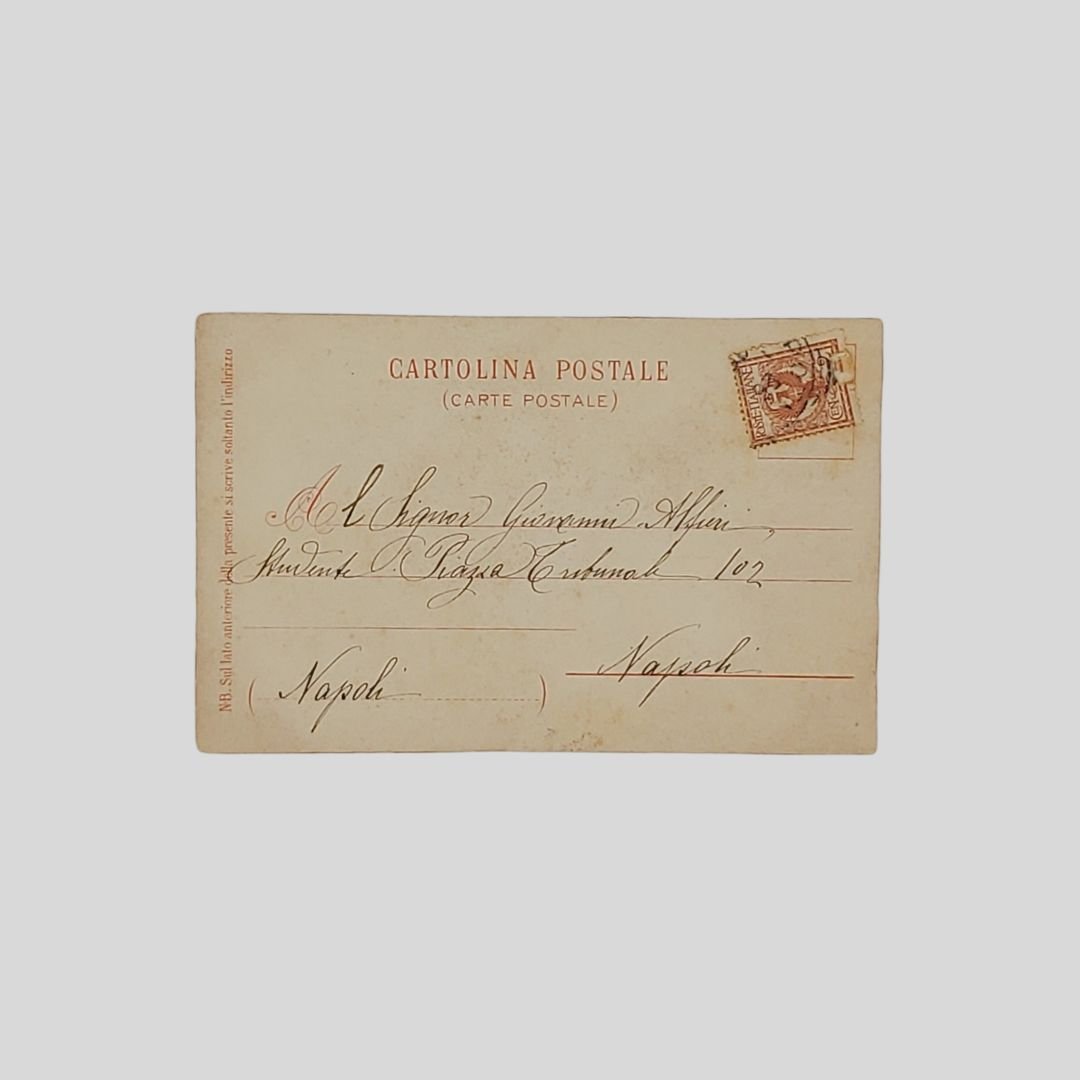 CARTOLINA POSTALE
(CARTE POSTALE)
POSTE ITALIANE
CEN
Al Signor Giovanni Alfieri,
Studente. Piazza Tribunali 102
Napoli
(Napoli)
NB. Sul lato anteriore della presente si scrive soltanto l'indirizzo